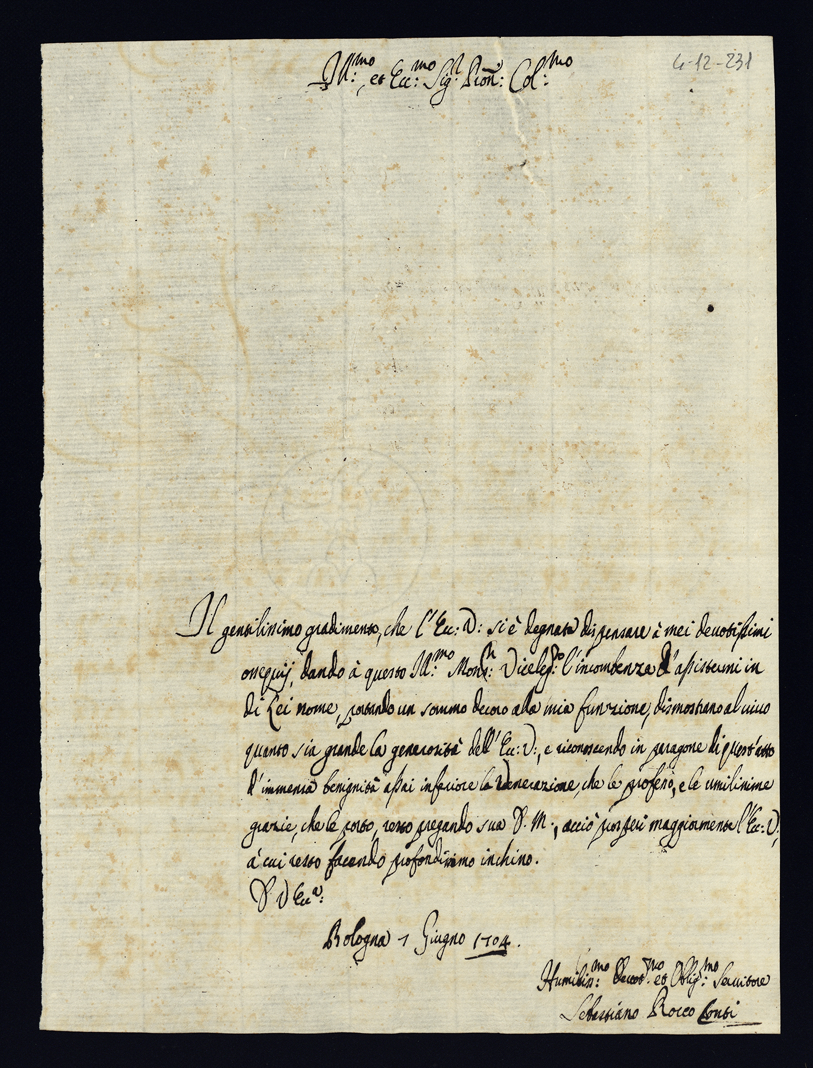 4-12-231
Ill:mo et Ecc:mo Sig:r Pron: Col:mo
Il gentilissimo gradimento, che l'Ecc: V: si è degnata dispensare à miei devotissimi
ossequij, dando à questo Ill:mo Mons:r Viceleg:to l'incombenza d'assistermi in
di Lei nome, portando un sommo decoro alla mia funzione, dimostrano al vivo
quanto sia grande la generosità dell'Ecc: V:, e riconoscendo in paragone di quest'atto
d'immensa benignità assai inferiore la venerazione, che le professo, e le umilissime
grazie, che le porto, resto pregando sua D. M., acciò prosperi maggiormente l'Ecc: V:,
à cui resto facendo profondissimo inchino.
D V Ecc:a
Bologna 1 Giugno 1704.
Humiliss:mo Devot:mo et Oblig:mo Servitore
Sebastiano Rocco Conti